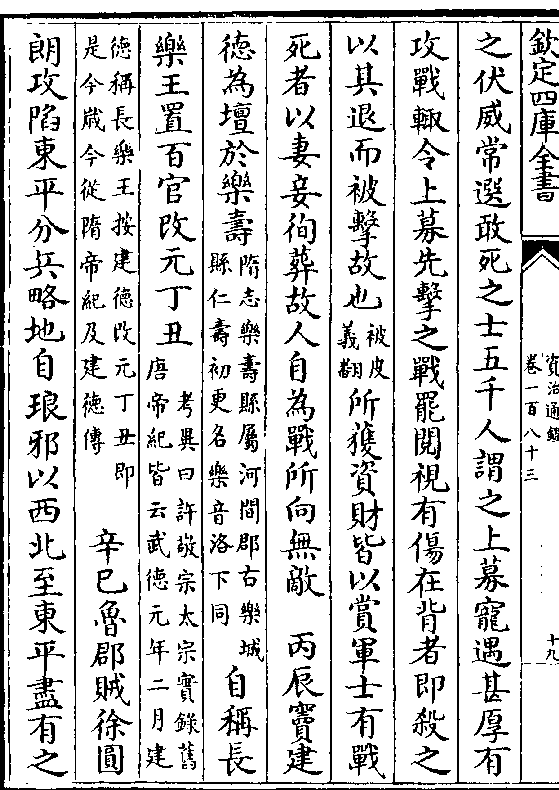 欽定四庫全書
資治通鑑
卷一百八十三
十九
之伏威常選敢死之士五千人謂之上募寵遇甚厚有
攻戰輙令上募先擊之戰罷閱視有傷在背者即殺之
以其退而被擊故也被皮義翻所獲資財皆以賞軍士有戰
死者以妻妾徇葬故人自為戰所向無敵　丙辰竇建
德為壇於樂壽隋志樂壽縣屬河間郡古樂城縣仁壽初更名樂音洛下同自稱長
樂王置百官改元丁丑考異曰許敬宗太宗實錄舊唐帝紀皆云武德元年二月建
德稱長樂王按建德改元丁丑即是今歲今從隋帝紀及建德傳　辛巳魯郡賊徐圓
朗攻陷東平分兵略地自琅邪以西北至東平盡有之